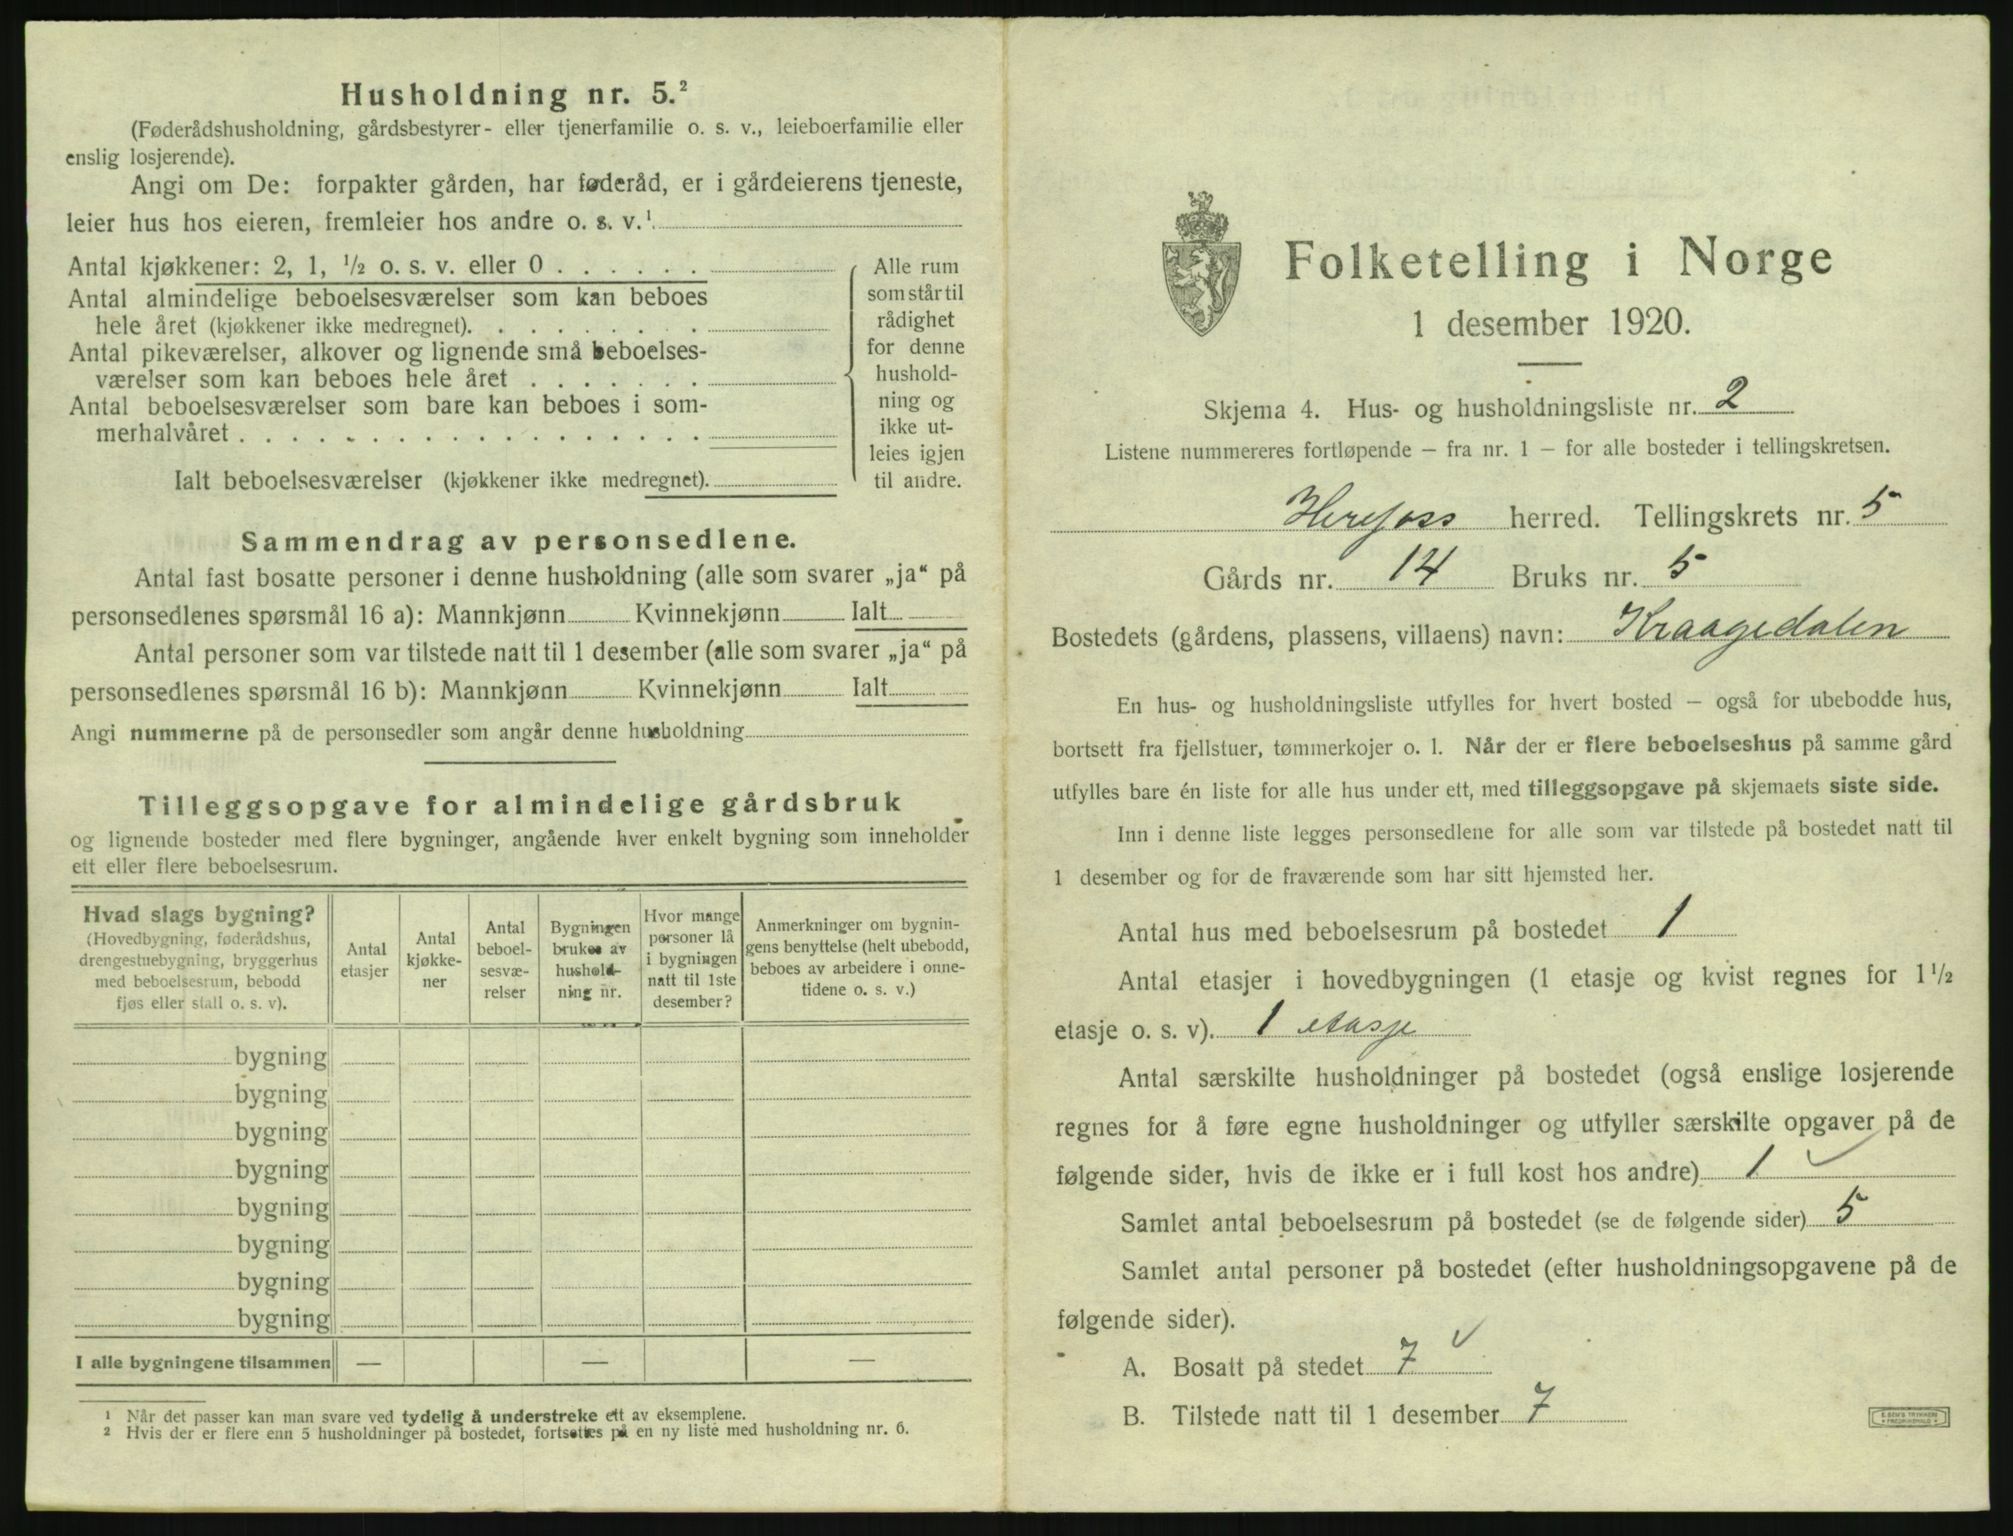 Husholdning nr. 5.²
(Føderådshusholdning, gårdsbestyrer- eller tjenerfamilie o. s. v., leieboerfamilie eller
enslig losjerende).
Angi om De: forpakter gården, har føderåd, er i gårdeierens tjeneste,
leier hus hos eieren, fremleier hos andre o. s. v.¹
Antal kjøkkener: 2, 1, ½ o. s. v. eller 0 . . . . . .
Antal almindelige beboelsesværelser som kan beboes
hele året (kjøkkener ikke medregnet). . . . . . . . .
Antal pikeværelser, alkover og lignende små beboelses-
værelser som kan beboes hele året . . . . . . .
Antal beboelsesværelser som bare kan beboes i som-
merhalvåret . . . . . . . . . . . . . . . . . .
Ialt beboelsesværelser (kjøkkener ikke medregnet).
Alle rum
som står til
rådighet
for denne
hushold-
ning og
ikke ut-
leies igjen
til andre.
Sammendrag av personsedlene.
Antal fast bosatte personer i denne husholdning (alle som svarer „ja“ på
personsedlenes spørsmål 16 a): Mannkjønn Kvinnekjønn Ialt
Antal personer som var tilstede natt til 1 desember (alle som svarer „ja“ på
personsedlenes spørsmål 16 b): Mannkjønn Kvinnekjønn Ialt
Angi nummerne på de personsedler som angår denne husholdning
Tilleggsopgave for almindelige gårdsbruk
og lignende bosteder med flere bygninger, angående hver enkelt bygning som inneholder
ett eller flere beboelsesrum.
Hvad slags bygning?
(Hovedbygning, føderådshus,
drengestuebygning, bryggerhus
med beboelsesrum, bebodd
fjøs eller stall o. s. v).
Antal
etasjer
Antal
kjøkke-
ner
Antal
beboel-
sesvæ-
relser
Bygningen
brukes av
hushold-
ning nr.
Hvor mange
personer lå
i bygningen
natt til 1ste
desember?
Anmerkninger om bygnin-
gens benyttelse (helt ubebodd,
beboes av arbeidere i onne-
tidene o. s. v.)
bygning
bygning
bygning
bygning
bygning
bygning
bygning
bygning
I alle bygningene tilsammen — — —
¹ Når det passer kan man svare ved tydelig å understreke ett av eksemplene.
² Hvis der er flere enn 5 husholdninger på bostedet, fortsettes på en ny liste med husholdning nr. 6.
Folketelling i Norge
1 desember 1920.
Skjema 4. Hus- og husholdningsliste nr. 2
Listene nummereres fortløpende – fra nr. 1 – for alle bosteder i tellingskretsen.
Herefoss herred. Tellingskrets nr. 5
Gårds nr. 14 Bruks nr. 5
Bostedets (gårdens, plassens, villaens) navn: Kraagedalen
En hus- og husholdningsliste utfylles for hvert bosted – også for ubebodde hus,
bortsett fra fjellstuer, tømmerkojer o. l. Når der er flere beboelseshus på samme gård
utfylles bare én liste for alle hus under ett, med tilleggsopgave på skjemaets siste side.
Inn i denne liste legges personsedlene for alle som var tilstede på bostedet natt til
1 desember og for de fraværende som har sitt hjemsted her.
Antal hus med beboelsesrum på bostedet 1
Antal etasjer i hovedbygningen (1 etasje og kvist regnes for 1½
etasje o. s. v). 1 etasje
Antal særskilte husholdninger på bostedet (også enslige losjerende
regnes for å føre egne husholdninger og utfyller særskilte opgaver på de
følgende sider, hvis de ikke er i full kost hos andre) 1 ✓
Samlet antal beboelsesrum på bostedet (se de følgende sider) 5
Samlet antal personer på bostedet (efter husholdningsopgavene på de
følgende sider).
A. Bosatt på stedet 7 ✓
B. Tilstede natt til 1 desember 7